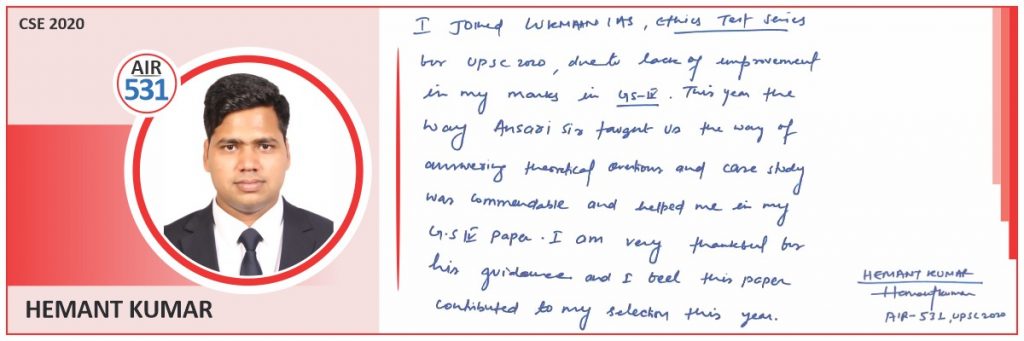 CSE 2020
AIR
531
HEMANT KUMAR
I Joined LUKMAAN IAS, Ethics Test Series
for UPSC 2020, due to lack of improvement
in my marks in GS-IV. This year the
way Ansari Sir taught us the way of
answering theoretical questions and case study
was commendable and helped me in my
G.S IV paper. I am very thankful for
his guidance and I feel this paper
contributed to my selection this year.
HEMANT KUMAR
Hemantkumar
AIR-531, UPSC 2020